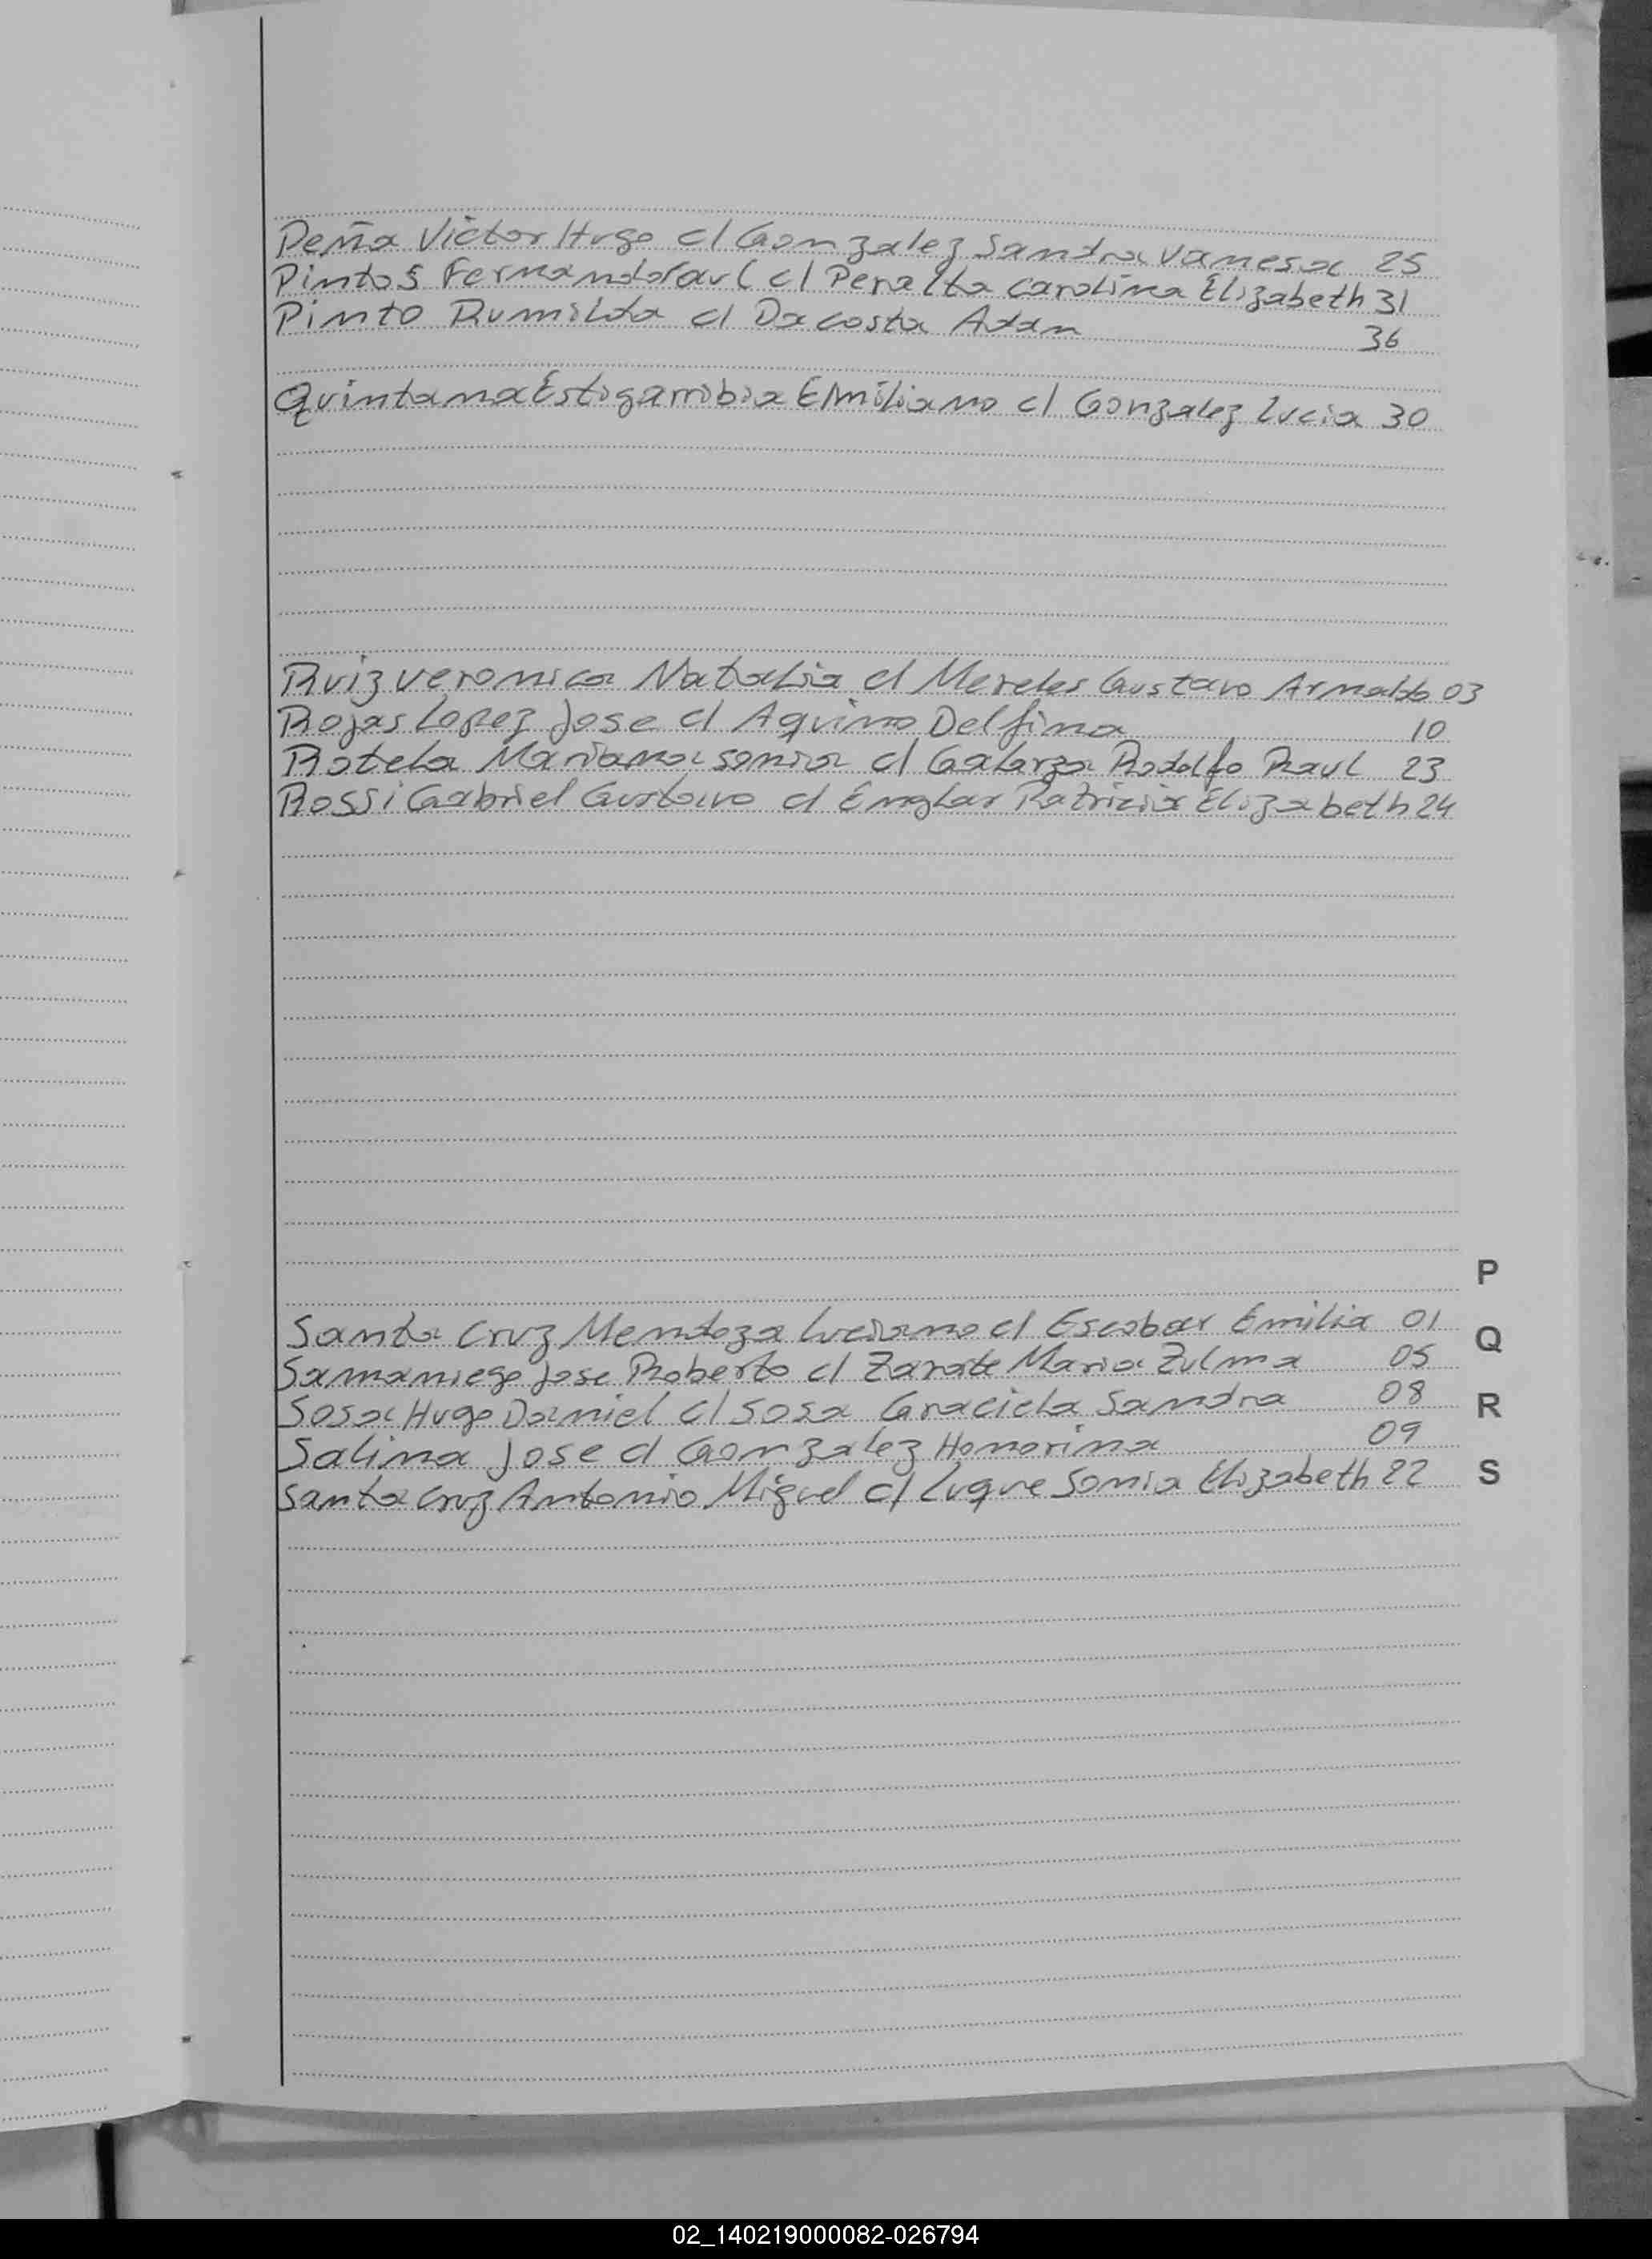 Peña Victor Hugo c/ Gonzalez Sandra Vanesa 25
Pintos Fernando Raul c/ Peralta Carolina Elizabeth 31
Pinto Rumilda c/ Da costa Adan 36
Quintana Estigarribia Emiliano c/ Gonzalez Lucia 30
Ruiz Veronica Natalia c/ Mereles Gustavo Arnaldo 03
Rojas Lopez Jose c/ Aquino Delfina 10
Rotela Mariana Sonia c/ Galarza Rodolfo Raul 23
Rossi Gabriel Gustavo c/ Englar Patricia Elizabeth 24
P
Santa Cruz Mendoza Luciano c/ Escobar Emilia 01
Q
Samaniego Jose Roberto c/ Zarate Maria Zulma 05
Sosa Hugo Daniel c/ Sosa Graciela Sandra 08
R
Salina Jose c/ Gonzalez Honorina 09
Santa Cruz Antonio Miguel c/ Luque Sonia Elizabeth 22
S
02_140219000082-026794